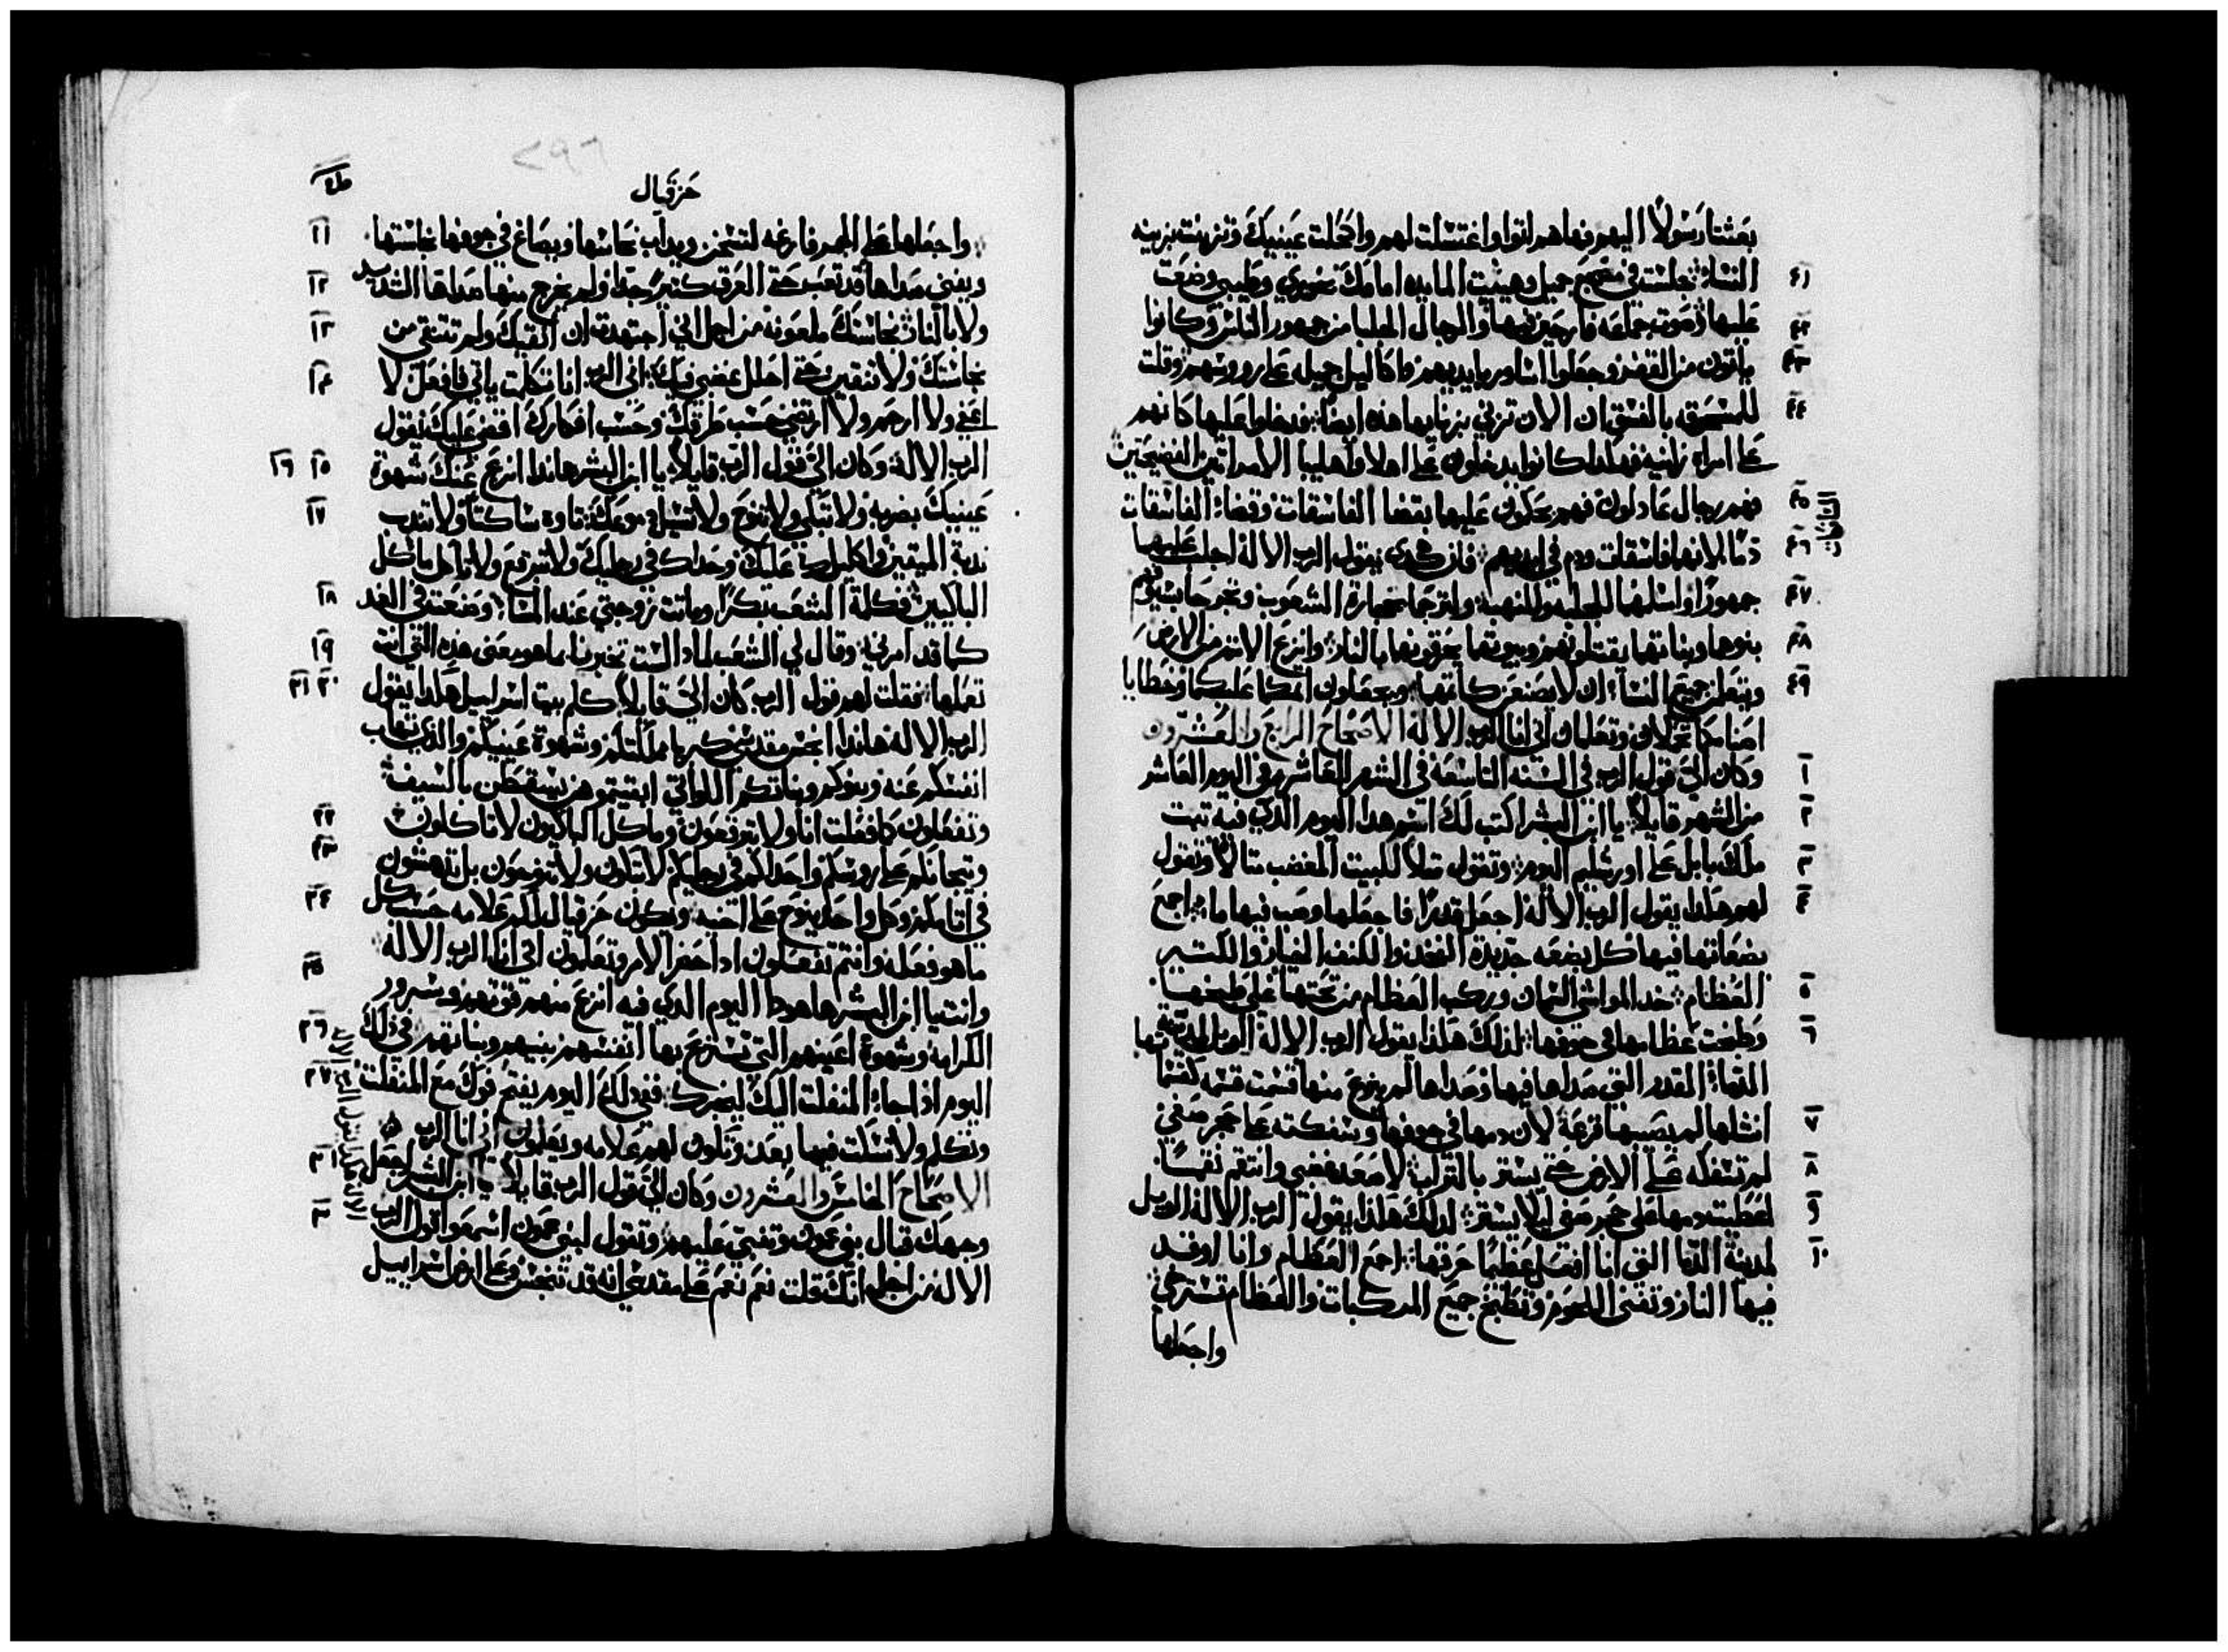 بعثنا رسولًا اليهم فهاهم اتوا واغتسلت لهم واكحلت عينيك وتزينت بزينه
٤١ النساء: جلست في مضجع جميل وهيئت المايده امامك بخوري وطيبي وضعت
٤٢ عليها: وصوت جماعه فارحين فيها والرجال الجلبا من جمهور الناس وكانوا
٤٣ ياتون من القفر وجعلوا اساور بايديهم واكاليل جميله على رووسهم: وقلت
٤٤ للمنسحقه بالفسق ان الان تزني بزنايها هذه ايضًا: ودخلوا عليها كانهم
على امراه زانيه فهكذا كانوا يدخلون على اهلا واهليبا الامراتين الفضيحتين
٤٥ فهم رجال عادلون فهم يحكمون عليها بقضا الفاسقات وقضاء الفاسقات
٤٦ دمًا لانها فاسقات ودم في ايديهم: فان هكذى يقول الرب الاله اجلب عليهما
٤٧ جمهورًا واسلمهما للجليه وللنهبه: ولترجما بحجارة الشعوب وتجرحا بسيوفهم
٤٨ بنوها وبناتها يقتلونهم وبيوتها يحرقونها بالنار: وانزع الاثم من الارض
٤٩ ويتعلمن جميع النساء ان لا يصنعن كاثمها: ويجعلون اثمكما عليكما وخطايا
اصنامكما تحملان وتعلمان اني انا الرب الاله الاصحاح الرابع والعشرون
١ وكان اليّ قول الرب في السنه التاسعه في الشهر العاشر وفي اليوم العاشر
٢ من الشهر قايلًا: يا ابن البشر اكتب لك اسم هذا اليوم الذي فيه تبت
٣ ملك بابل على اورشليم اليوم: وتقول مثلًا للبيت المغضب مثالًا وتقول
٤ لهم هكذا يقول الرب الاله اجعل قدرًا فاجعلها وصب فيها ماء: اجمع
بضعاتها فيها كل بضعه جديده الفخذ والكنف الخيار والكثير
٥ العظام: خذ المواشي السمان وركب العظام من تحتها غلي طبخها
٦ وطبخت عظامها في جوفها: لذلك هكذا يقول الرب الاله الويل لمدينة
الدما: القدر التي صداها فيها وصداها لم يخرج منها قسمت قسمه كقسما
٧ انشلها لم يصبها قرعة: لان دمها في جوفها وسفكته على حجر صفي
٨ لم تسفكه على الارض حتى يستر بالتراب: لاصعد غضبي وانتقم نقمًا
٩ اعطيت دمها على حجر صفي ليلا يستر: لذلك هكذا يقول الرب الاله الويل
١٠ لمدينة الدما التي انا افعل عظيمًا حرقها: اجمع العظام وانا اوقد
فيها النار وتفنى اللحوم وتطبخ جميع المركبات والعظام تسترخي
واجعلها
٢٩٦
حزقيال
١١ واجعلها على الجمر فارغه لتسخن ويداب نحاسها ويصاغ في جوفها نجاستها
١٢ ويفني صداها: قد تعبت حتى العرق كثيرًا جدًا ولم يخرج منها صداها الشديد
١٣ ولا بالنار: نجاستك ملعونه من اجل اني اجتهدت ان انقيك ولم تتنقي من
١٤ نجاستك ولا تنقين حتى احلل غضبي فيك: اني الرب انا تكلمت ياتي فافعل لا
اعفي ولا ارحم ولا ارتضي حسب طرقك وحسب افكارك اقضي عليك يقول
١٥ ١٦ الرب الاله: وكان اليّ قول الرب قايلًا: يا ابن البشر هانذا انزع عنك شهوة
١٧ عينيك بضربه: ولا تبكي ولا تنوح ولا تسيل دموعك: تاوه ساكتًا ولا تندب
ندبة الميتين: اكليلك عليك وحذاك في رجليك ولا تبرقع ولا تاكل ماكل
١٨ الباكيين: فكلمة الشعب بكرًا وماتت زوجتي عند المسا: وصنعت في الغد
١٩ كما قد امرني: وقال لي الشعب لماذا لست تخبرنا بما هو معنى هذه التي انت
٢٠ ٢١ تعملها: فقلت لهم قول الرب كان اليّ قايلًا: كلم بيت اسراييل هكذا يقول
الرب الاله هانذا انجس مقدسي كبريا مملكتكم وشهوة عينيكم والذي تهاب
انفسكم عنه وبنوكم وبناتكم اللواتي ابقيتموهن يسقطن بالسيف:
٢٢ وتفعلون كما فعلت انا ولا تبرقعون وماكل الباكيون لا تاكلون:
٢٣ وتيجانكم على رووسكم واحذاكم في رجليكم لا تبكون ولا تنوحون بل تدهشون
٢٤ في اثامكم وكل واحد ينوح على اخيه: ويكون حزقيال لكم علامه حسب كل
ما هو فعله وانتم تفعلون اذا حضر الامر وتعلمون اني انا الرب الاله
٢٥ وانت يا ابن البشر هاهوذا اليوم الذي فيه انزع منهم قوتهم وسرور
٢٦ الكرامه وشهوة اعينهم التي تستريح بها انفسهم بنيهم وبناتهم: في ذلك
٢٧ اليوم اذا جاء المنفلت اليك ليخبرك: ففي ذلك اليوم يفتح فوك مع المنفلت
وتكلم ولا تسكت فيما بعد: وتكون لهم علامه ويعلمون اني انا الرب
١ الاصحاح الخامس والعشرون وكان اليّ قول الرب قايلًا: يا ابن البشر اجعل
٢ وجهك قبال بني عمون وتنبي عليهم: وتقول لبني عمون اسمعوا قول الرب
الاله من اجل انك قلت نعم نعم على مقدسي انه قد تنجس وعلى ارض اسراييل